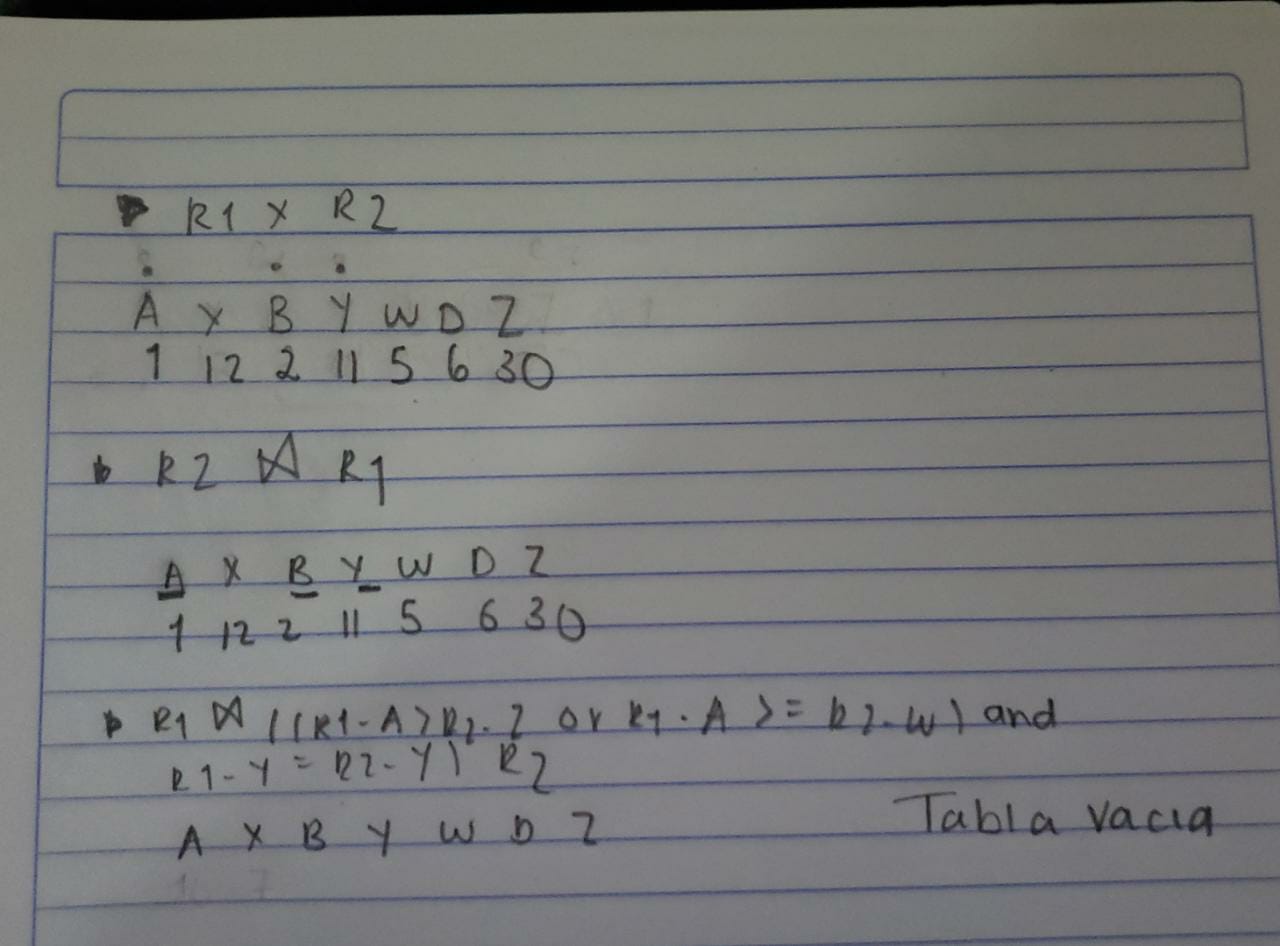 R1 x R2
A X B Y W D Z
1 12 2 11 5 6 30
R2 ⋈ R1
A X B Y W D Z
1 12 2 11 5 6 30
R1 ⋈ ((R1-A > R2-Z or R1-A >= R2-W) and
R1-Y = R2-Y) R2
A X B Y W D Z Tabla vacia